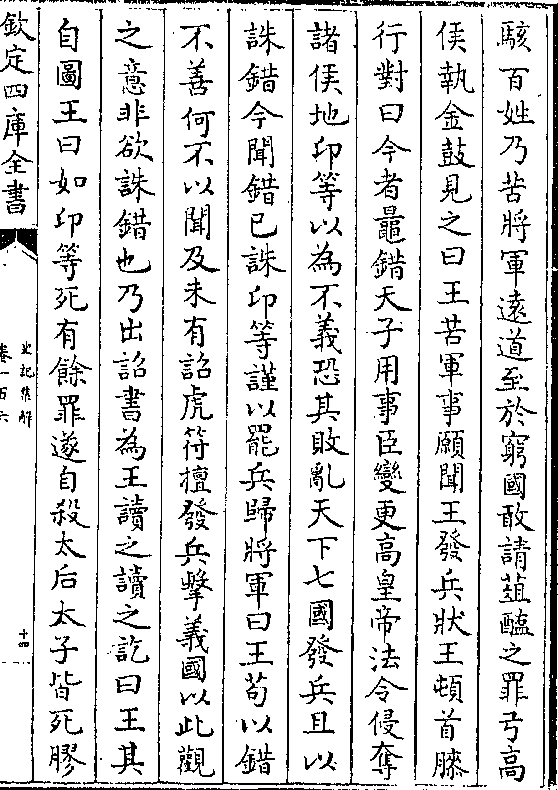 駭百姓乃苦將軍遠道至於窮國敢請菹醢之罪弓高
侯執金鼓見之曰王苦軍事願聞王發兵狀王頓首膝
行對曰今者鼂錯天子用事臣變更高皇帝法令侵奪
諸侯地卬等以為不義恐其敗亂天下七國發兵且以
誅錯今聞錯已誅卬等謹以罷兵歸將軍曰王苟以錯
不善何不以聞及未有詔虎符擅發兵擊義國以此觀
之意非欲誅錯也乃出詔書為王讀之讀之訖曰王其
自圖王曰如卬等死有餘罪遂自殺太后太子皆死膠
欽定四庫全書
史記集解
卷一百六
十四